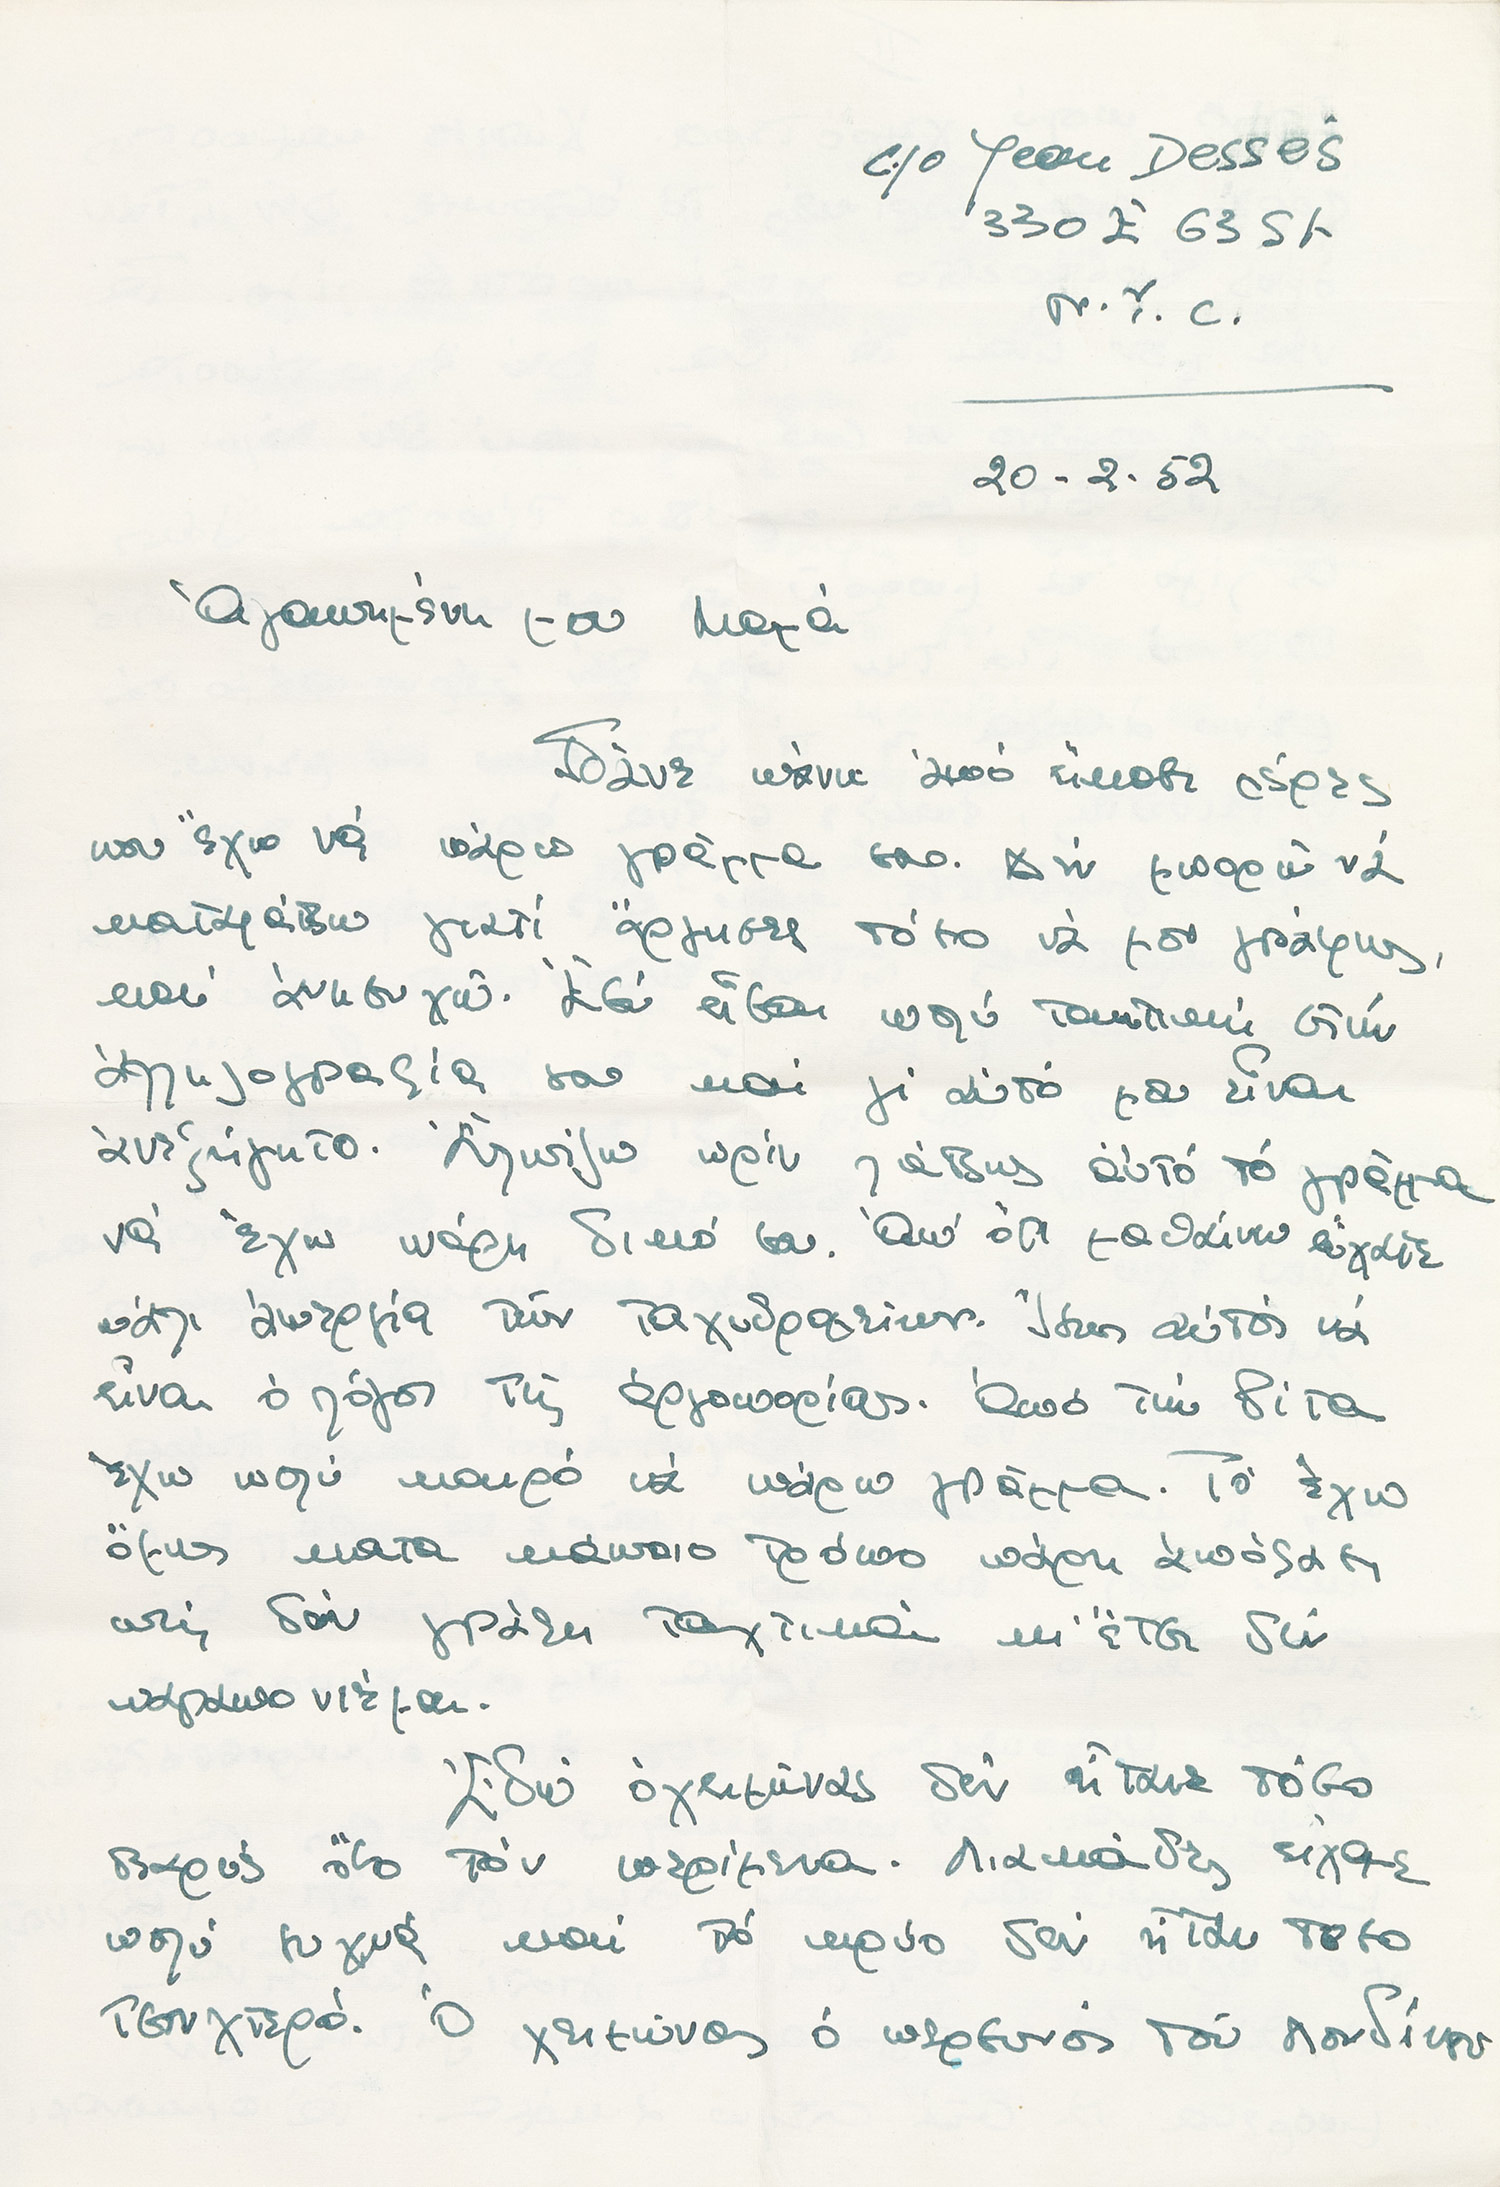 c/o Jean Dessès
330 E 63 St
N.Y.C.
20-2-52
Ἀγαπημένη μου Μαμά
Πᾶνε πάνω ἀπό εἴκοσι μέρες
που ἔχω νά πάρω γράμμα σου. Δέν μπορῶ νά
καταλάβω γιατί ἄργησες τόσο νά μου γράψης,
καί ἀνησυχῶ. Ἐσύ εἶσαι πολύ τακτική στήν
ἀλληλογραφία σου καί γι αὐτό μου εἶναι
ἀνεξήγητο. Ἐλπίζω πρίν λάβης αὐτό τό γράμμα
νά ἔχω πάρη δικό σου. Ἀπ' ὅτι μαθαίνω εἴχατε
πάλι ἀπεργία τῶν ταχυδρομείων. Ἴσως αὐτός νά
εἶναι ὁ λόγος τῆς ἀργοπορίας. Ἀπό τήν Βίτα
ἔχω πολύ καιρό νά πάρω γράμμα. Τό ἔχω
ὅμως κατα κάποιο τρόπο πάρη ἀπόφαση
πώς δέν γράφει ταχτικά κι' ἔτσι δέν
παραπονιέμαι.
Ἐδῶ ὁ χειμώνας δέν ἤτανε τόσο
βαρύς ὅσο τόν περίμενα. Λιακάδες εἴχαμε
πολύ συχνά καί τό κρύο δέν ἤταν τοσο
τσουχτερό. Ὁ χειμώνας ὁ περσινός τοῦ Λονδίνου